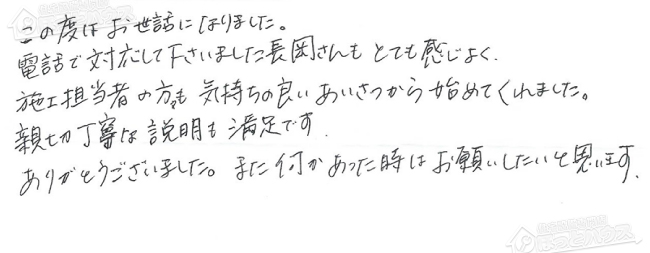 この度はお世話になりました。
電話で対応して下さいました長岡さんもとても感じよく、
施工担当者の方も気持ちの良いあいさつから始めてくれました。
親切丁寧な説明も満足です。
ありがとうございました。また何かあった時はお願いしたいと思います。